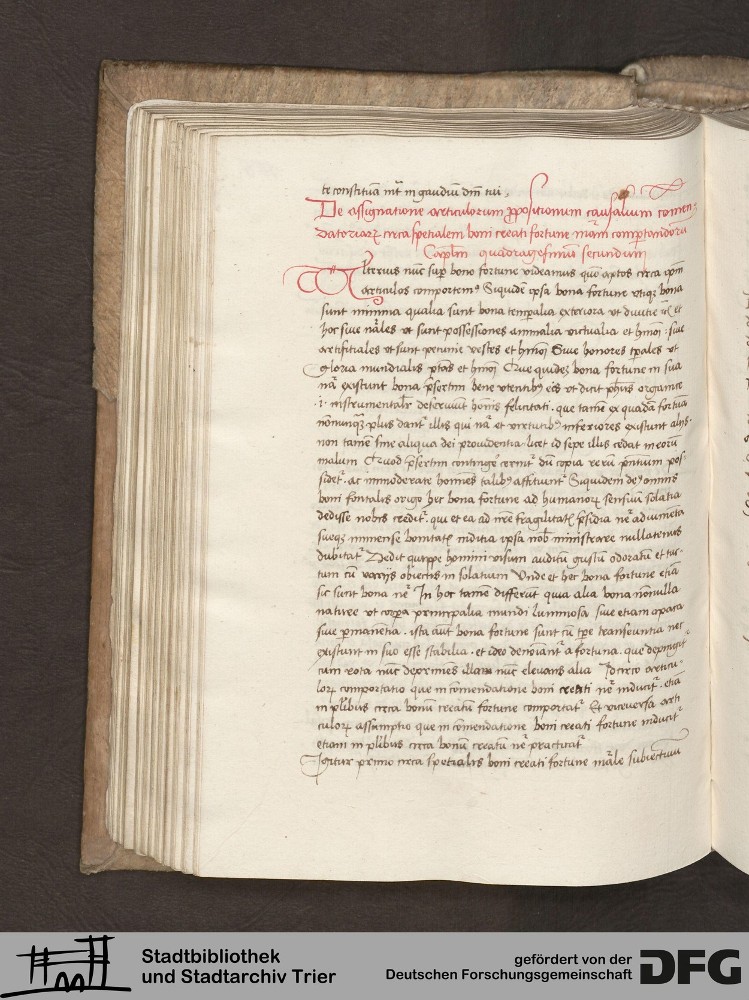 te constituā int̄ in gaudiū dn̄i tui,
De assignatione articulorum propositionum causalium comen-
datoriarꝝ circa spetialem boni creati fortune mām comportandorū
Caplm̄ quadragesimum secundum
Vlterius nūc sup bono fortune videamus quō aptos circa ipm̄
articulos comportemꝰ Siquidem ipsa bona fortune vtiqꝫ bona
sunt minima qualia sunt bona temporalia exteriora vt diuitie et
hoc siue nāles vt sunt possessiones animalia victualia et hmōi siue
artifitiales vt sunt pecunie vestes et hmōi Siue honores tpales vt
gloria mundialis ptās et hmōi Que quidē bona fortune in sua
nā existunt bona psertim bene vtentibꝰ eis vt dicit phūs organice
.i. instrumentalr̄ deseruiūt hoīnis felicitati. que tamē ex quadā fortuā
nōnunqꝫ plus dantᷣ illis qui nā et virtutibꝰ inferiores existunt alijs.
non tamen sine aliqua dei prouidentia. licet id sepe illis cedat in eorū
malum Quod psertim contingē cernitᷣ dū copia rerū pntium pos-
sidetᷣ. ac immoderate homines talibꝰ affitiuntᷣ Siquidem deꝰ omnis
boni fontalis origo hec bona fortune ad humanorꝝ sensuū solatia
dedisse nobis creditᷣ. qui et ea ad nr̄e fragilitatꝭ psidia nē adiumēta
sueqꝫ inmense bonitatꝭ inditia ipsa nob̄ ministrare nullatenus
dubitatᷣ Dedit quippe homini visum auditū gustū odoratū et tac-
tum cū varijs obiectis in solatium Vnde et hec bona fortune etiā
sic sunt bona nē In hoc tamē differūt quia alia bona nōnulla
nature vt corpa principalia mundi luminosa siue etiam opaca
siue pmanentia. ista aūt bona fortune sunt cū tpe transeuntia nec
existunt in suo esse stabilia. et ideo denoīantᷣ a fortuna. que depingit᷑
cum rota nūc deprimēs illam nūc eleuans alia Idcirco articu-
lorꝝ comportatio que in cōmendatione boni creati nē inducitᷣ. etiā
in plibus circa bonū creatū fortune comportatᷣ Et viceuersa arti
culorꝝ assumptio que in cōmendatione boni creati fortune inducitᷣ
etiam in plibus circa bonū creatū nē practicatᷣ
Igitur primo circa spetialis boni creati fortune māle subiectiuū
Stadtbibliothek
und Stadtarchiv Trier
gefördert von der
Deutschen Forschungsgemeinschaft
DFG